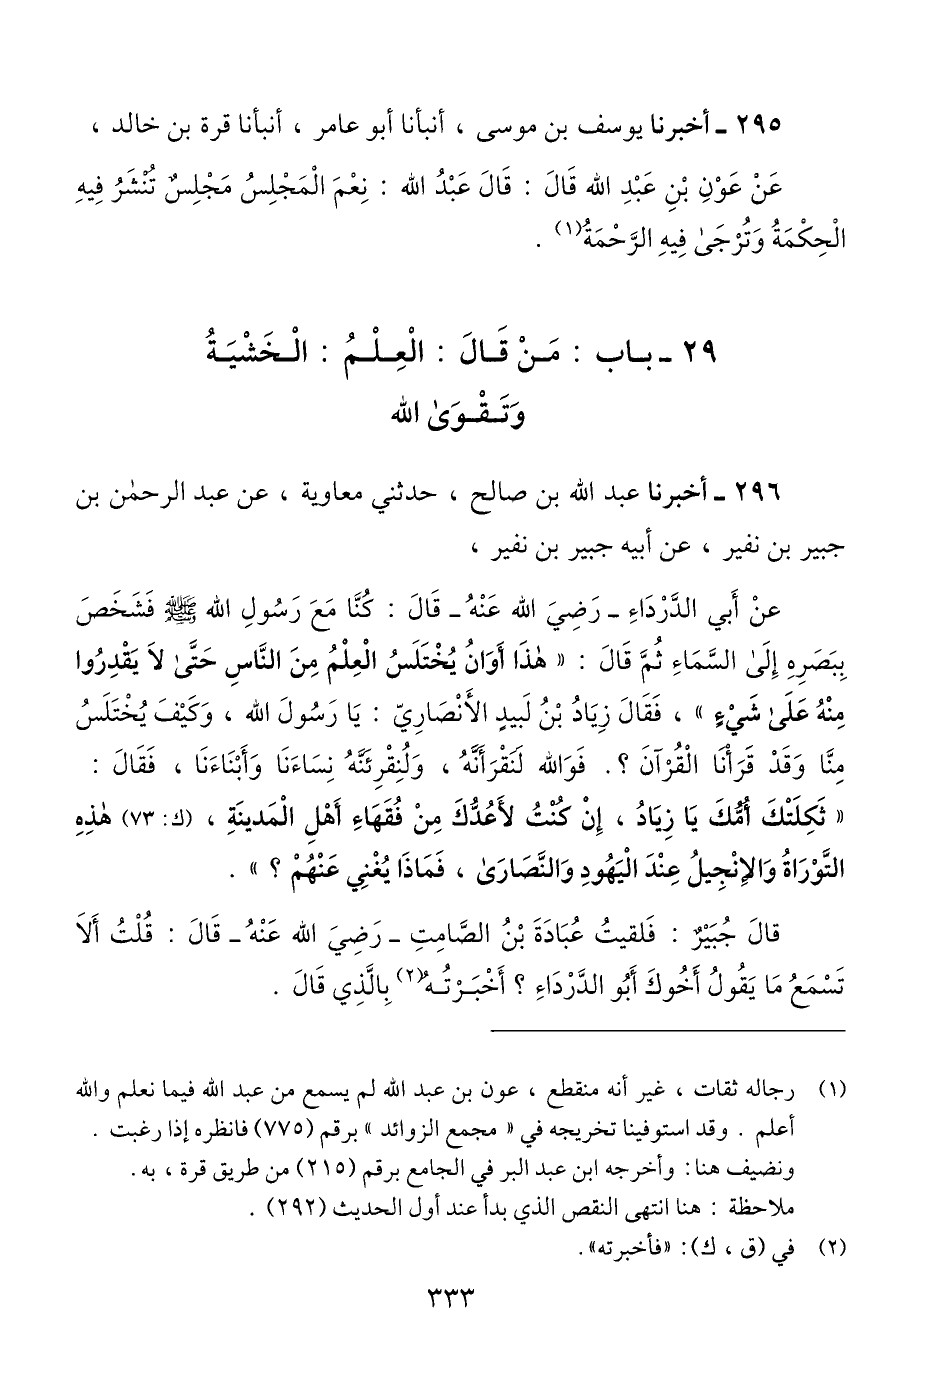 ٢٩٥ ـ أخبرنا يوسف بن موسى ، أنبأنا أبو عامر ، أنبأنا قرة بن خالد ،
عَنْ عَوْنِ بْنِ عَبْدِ الله قَالَ : قَالَ عَبْدُ الله : نِعْمَ الْمَجْلِسُ مَجْلِسٌ تُنْشَرُ فِيهِ
الْحِكْمَةُ وَتُرْجَىٰ فِيهِ الرَّحْمَةُ(١) .
٢٩ ـ باب : مَنْ قَالَ : الْعِلْمُ : الْخَشْيَةُ
وَتَقْوَىٰ الله
٢٩٦ ـ أخبرنا عبد الله بن صالح ، حدثني معاوية ، عن عبد الرحمٰن بن
جبير بن نفير ، عن أبيه جبير بن نفير ،
عنْ أَبي الدَّرْدَاءِ ـ رَضِيَ الله عَنْهُ ـ قَالَ : كُنَّا مَعَ رَسُولِ الله ﷺ فَشَخَصَ
بِبَصَرِهِ إِلَىٰ السَّمَاءِ ثُمَّ قَالَ : « هٰذَا أَوَانُ يُخْتَلَسُ الْعِلْمُ مِنَ النَّاسِ حَتَّىٰ لاَ يَقْدِرُوا
مِنْهُ عَلَىٰ شَيْءٍ » ، فَقَالَ زِيَادُ بْنُ لَبيدٍ الأَنْصَارِيّ : يَا رَسُولَ الله ، وَكَيْفَ يُخْتَلَسُ
مِنَّا وَقَدْ قَرَأْنَا الْقُرْآنَ ؟. فَوَالله لَنَقْرَأَنَّهُ ، وَلَنُقْرِئَنَّهُ نِسَاءَنَا وَأَبْنَاءَنَا ، فَقَالَ :
« ثَكِلَتْكَ أُمُّكَ يَا زِيَادُ ، إِنْ كُنْتُ لأَعُدُّكَ مِنْ فُقَهَاءِ أَهْلِ الْمَدينَةِ ، (ك: ٧٣) هٰذِهِ
التَّوْرَاةُ وَالإِنْجِيلُ عِنْدَ الْيَهُودِ وَالنَّصَارَىٰ ، فَمَاذَا يُغْنِي عَنْهُمْ ؟ » .
قالَ جُبَيْرٌ : فَلَقيتُ عُبَادَةَ بْنُ الصَّامِتِ ـ رَضِيَ الله عَنْهُ ـ قَالَ : قُلْتُ أَلاَ
تَسْمَعُ مَا يَقُولُ أَخُوكَ أَبُو الدَّرْدَاءِ ؟ أَخْبَرْتُهُ(٢) بِالَّذِي قَالَ .
(١) رجاله ثقات ، غير أنه منقطع ، عون بن عبد الله لم يسمع من عبد الله فيما نعلم والله
أعلم . وقد استوفينا تخريجه في « مجمع الزوائد » برقم (٧٧٥) فانظره إذا رغبت .
ونضيف هنا : وأخرجه ابن عبد البر في الجامع برقم (٢١٥) من طريق قرة ، به .
ملاحظة : هنا انتهى النقص الذي بدأ عند أول الحديث (٢٩٢) .
(٢) في (ق ، ك) : «فأخبرته» .
٣٣٣